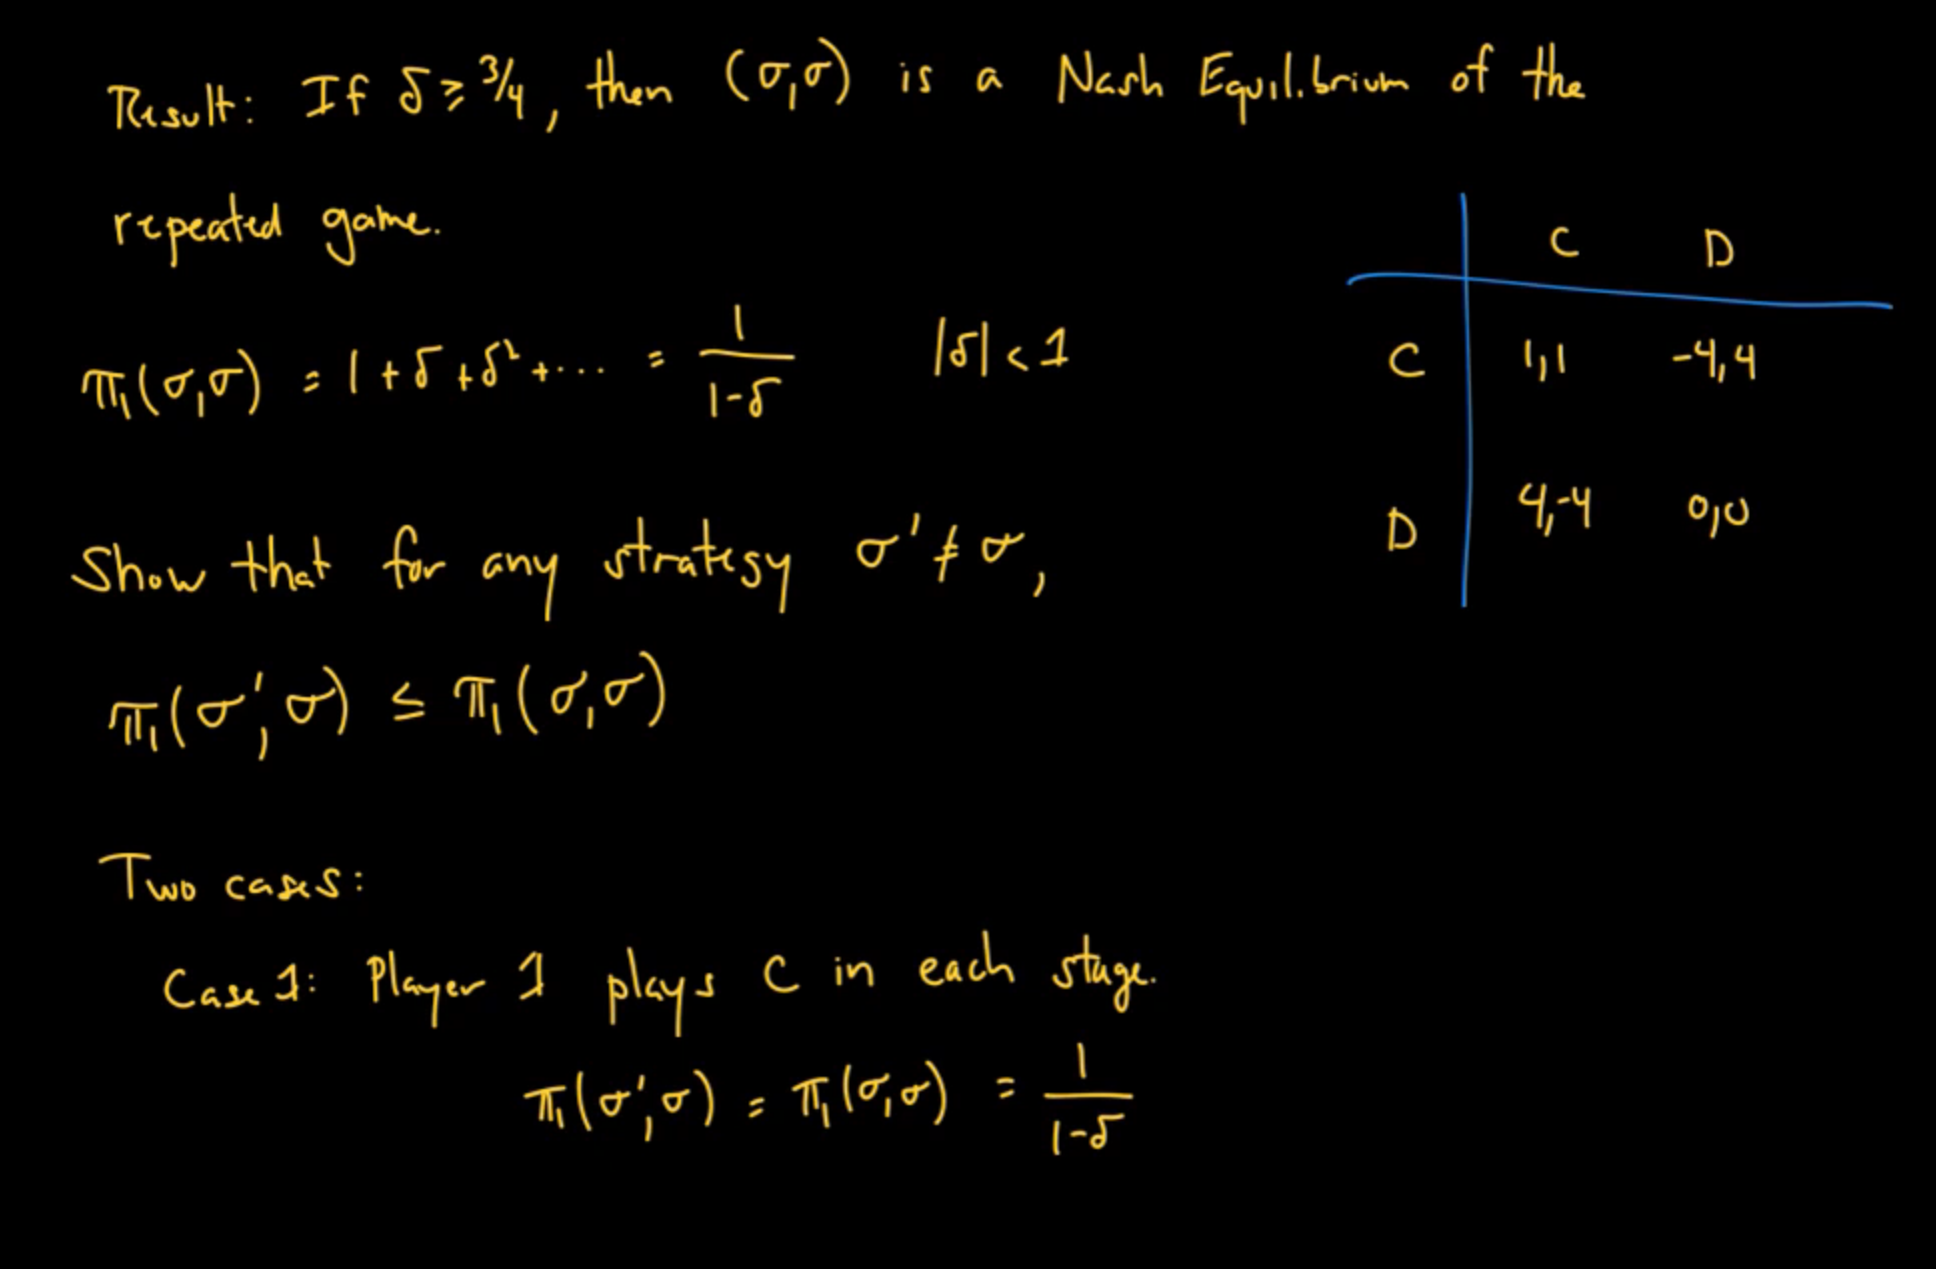 Result: If δ ≥ 3/4, then (σ,σ) is a Nash Equilibrium of the
repeated game.
C D
π₁(σ,σ) = 1 + δ + δ² + ··· = 1/(1-δ) |δ| < 1
C 1,1 -4,4
D 4,-4 0,0
Show that for any strategy σ' ≠ σ,
π₁(σ',σ) ≤ π₁(σ,σ)
Two cases:
Case 1: Player 1 plays C in each stage.
π₁(σ',σ) = π₁(σ,σ) = 1/(1-δ)